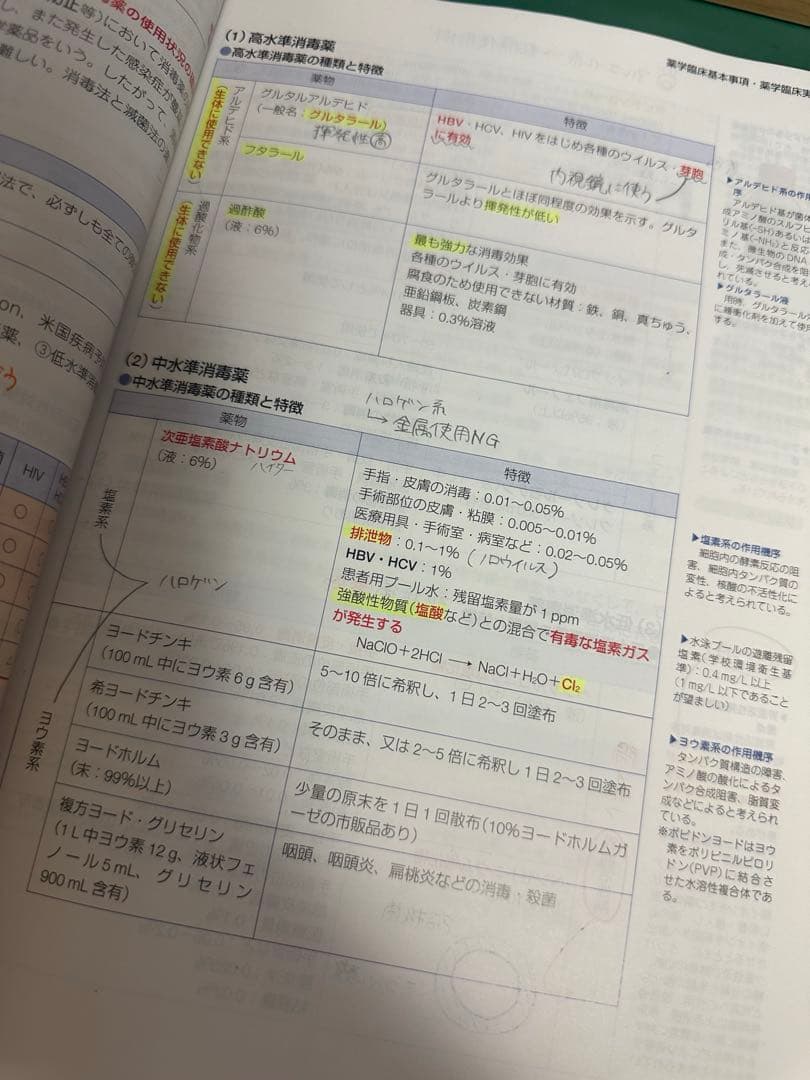 薬の使用状況の
等)において消毒薬の
し、また発生した感染症が
学薬品をいう。したがって、
難しい。消毒法と滅菌法の
法で、必ずしも全ての
on、米国疾病予
薬、③低水準消
HIV
薬学臨床基本事項・薬学臨床実
(1) 高水準消毒薬
●高水準消毒薬の種類と特徴
薬物
特徴
アルデヒド系
(生体に使用できない)
グルタルアルデヒド
(一般名:グルタラール)
揮発性高
HBV・HCV、HIVをはじめ各種のウイルス・芽胞
に有効
内視鏡に使う
フタラール
グルタラールとほぼ同程度の効果を示す。グルタ
ラールより揮発性が低い
過酸化物系
(生体に使用できない)
過酢酸
(液:6%)
最も強力な消毒効果
各種のウイルス・芽胞に有効
腐食のため使用できない材質:鉄、銅、真ちゅう、
亜鉛鋼板、炭素鋼
器具:0.3%溶液
(2) 中水準消毒薬
●中水準消毒薬の種類と特徴
ハロゲン系
↳金属使用NG
薬物
特徴
塩素系
次亜塩素酸ナトリウム
(液:6%)
ハイター
手指・皮膚の消毒:0.01〜0.05%
手術部位の皮膚・粘膜:0.005〜0.01%
医療用具・手術室・病室など:0.02〜0.05%
排泄物:0.1〜1% (ノロウイルス)
HBV・HCV:1%
患者用プール水:残留塩素量が1ppm
強酸性物質(塩酸など)との混合で有毒な塩素ガス
が発生する
NaClO+2HCl → NaCl+H₂O+Cl₂
ハロゲン
ヨウ素系
ヨードチンキ
(100mL中にヨウ素6g含有)
5〜10倍に希釈し、1日2〜3回塗布
希ヨードチンキ
(100mL中にヨウ素3g含有)
そのまま、又は2〜5倍に希釈し1日2〜3回塗布
ヨードホルム
(末:99%以上)
少量の原末を1日1回散布(10%ヨードホルムガ
ーゼの市販品あり)
複方ヨード・グリセリン
(1L中ヨウ素12g、液状フェ
ノール5mL、グリセリン
900mL含有)
咽頭、咽頭炎、扁桃炎などの消毒・殺菌
▶アルデヒド系の作用
序
アルデヒド基が菌体
成アミノ酸のスルフヒ
リル基(-SH)あるいは
ミノ基(-NH₂)と反応
また、微生物のDNA
成・タンパク合成を阻
し、死滅させると考え
れている。
▶グルタラール液
用時、グルタラール
に緩衝化剤を加えて使
する。
▶塩素系の作用機序
細胞内の酵素反応の阻
害、細胞内タンパク質の
変性、核酸の不活性化に
よると考えられている。
▶水泳プールの遊離残留
塩素(学校環境衛生基
準):0.4mg/L以上
(1mg/L以下であること
が望ましい)
▶ヨウ素系の作用機序
タンパク質構造の障害、
アミノ酸の酸化によるタ
ンパク合成阻害、脂質変
成などによると考えられ
ている。
※ポビドンヨードはヨウ
素をポリビニルピロリ
ドン(PVP)に結合さ
せた水溶性複合体であ
る。